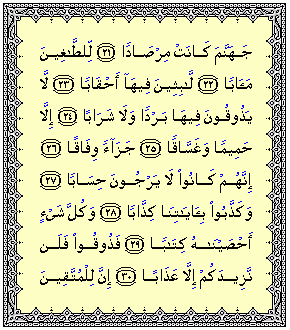 جَهَنَّمَ كَانَتْ مِرْصَادًا ﴿٢١﴾ لِّلطَّٰغِينَ
مَـَٔابًا ﴿٢٢﴾ لَّٰبِثِينَ فِيهَآ أَحْقَابًا ﴿٢٣﴾ لَّا
يَذُوقُونَ فِيهَا بَرْدًا وَلَا شَرَابًا ﴿٢٤﴾ إِلَّا
حَمِيمًا وَغَسَّاقًا ﴿٢٥﴾ جَزَآءً وِفَاقًا ﴿٢٦﴾
إِنَّهُمْ كَانُوا۟ لَا يَرْجُونَ حِسَابًا ﴿٢٧﴾
وَكَذَّبُوا۟ بِـَٔايَٰتِنَا كِذَّابًا ﴿٢٨﴾ وَكُلَّ شَىْءٍ
أَحْصَيْنَٰهُ كِتَٰبًا ﴿٢٩﴾ فَذُوقُوا۟ فَلَن
نَّزِيدَكُمْ إِلَّا عَذَابًا ﴿٣٠﴾ إِنَّ لِلْمُتَّقِينَ